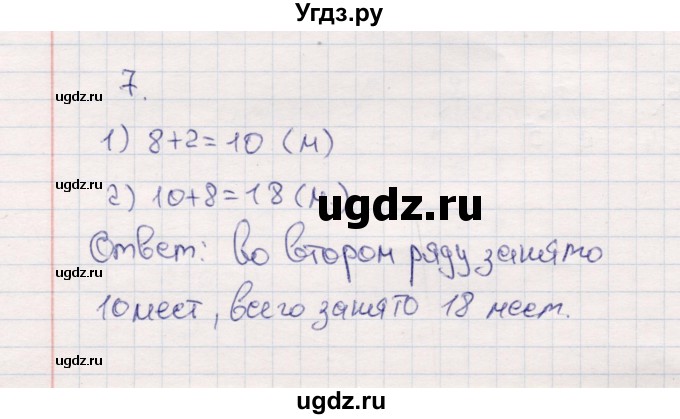 Угдз.ру
7.
ugdz.ru
ugdz.ru
1) 8+2=10 (м)
ugdz.ru
2) 10+8=18 (м)
ugdz.ru
ugdz.ru
Ответ: во втором ряду занято
ugdz.ru
10 мест, всего занято 18 мест.
ugdz.ru
ugdz.ru
ugdz.ru